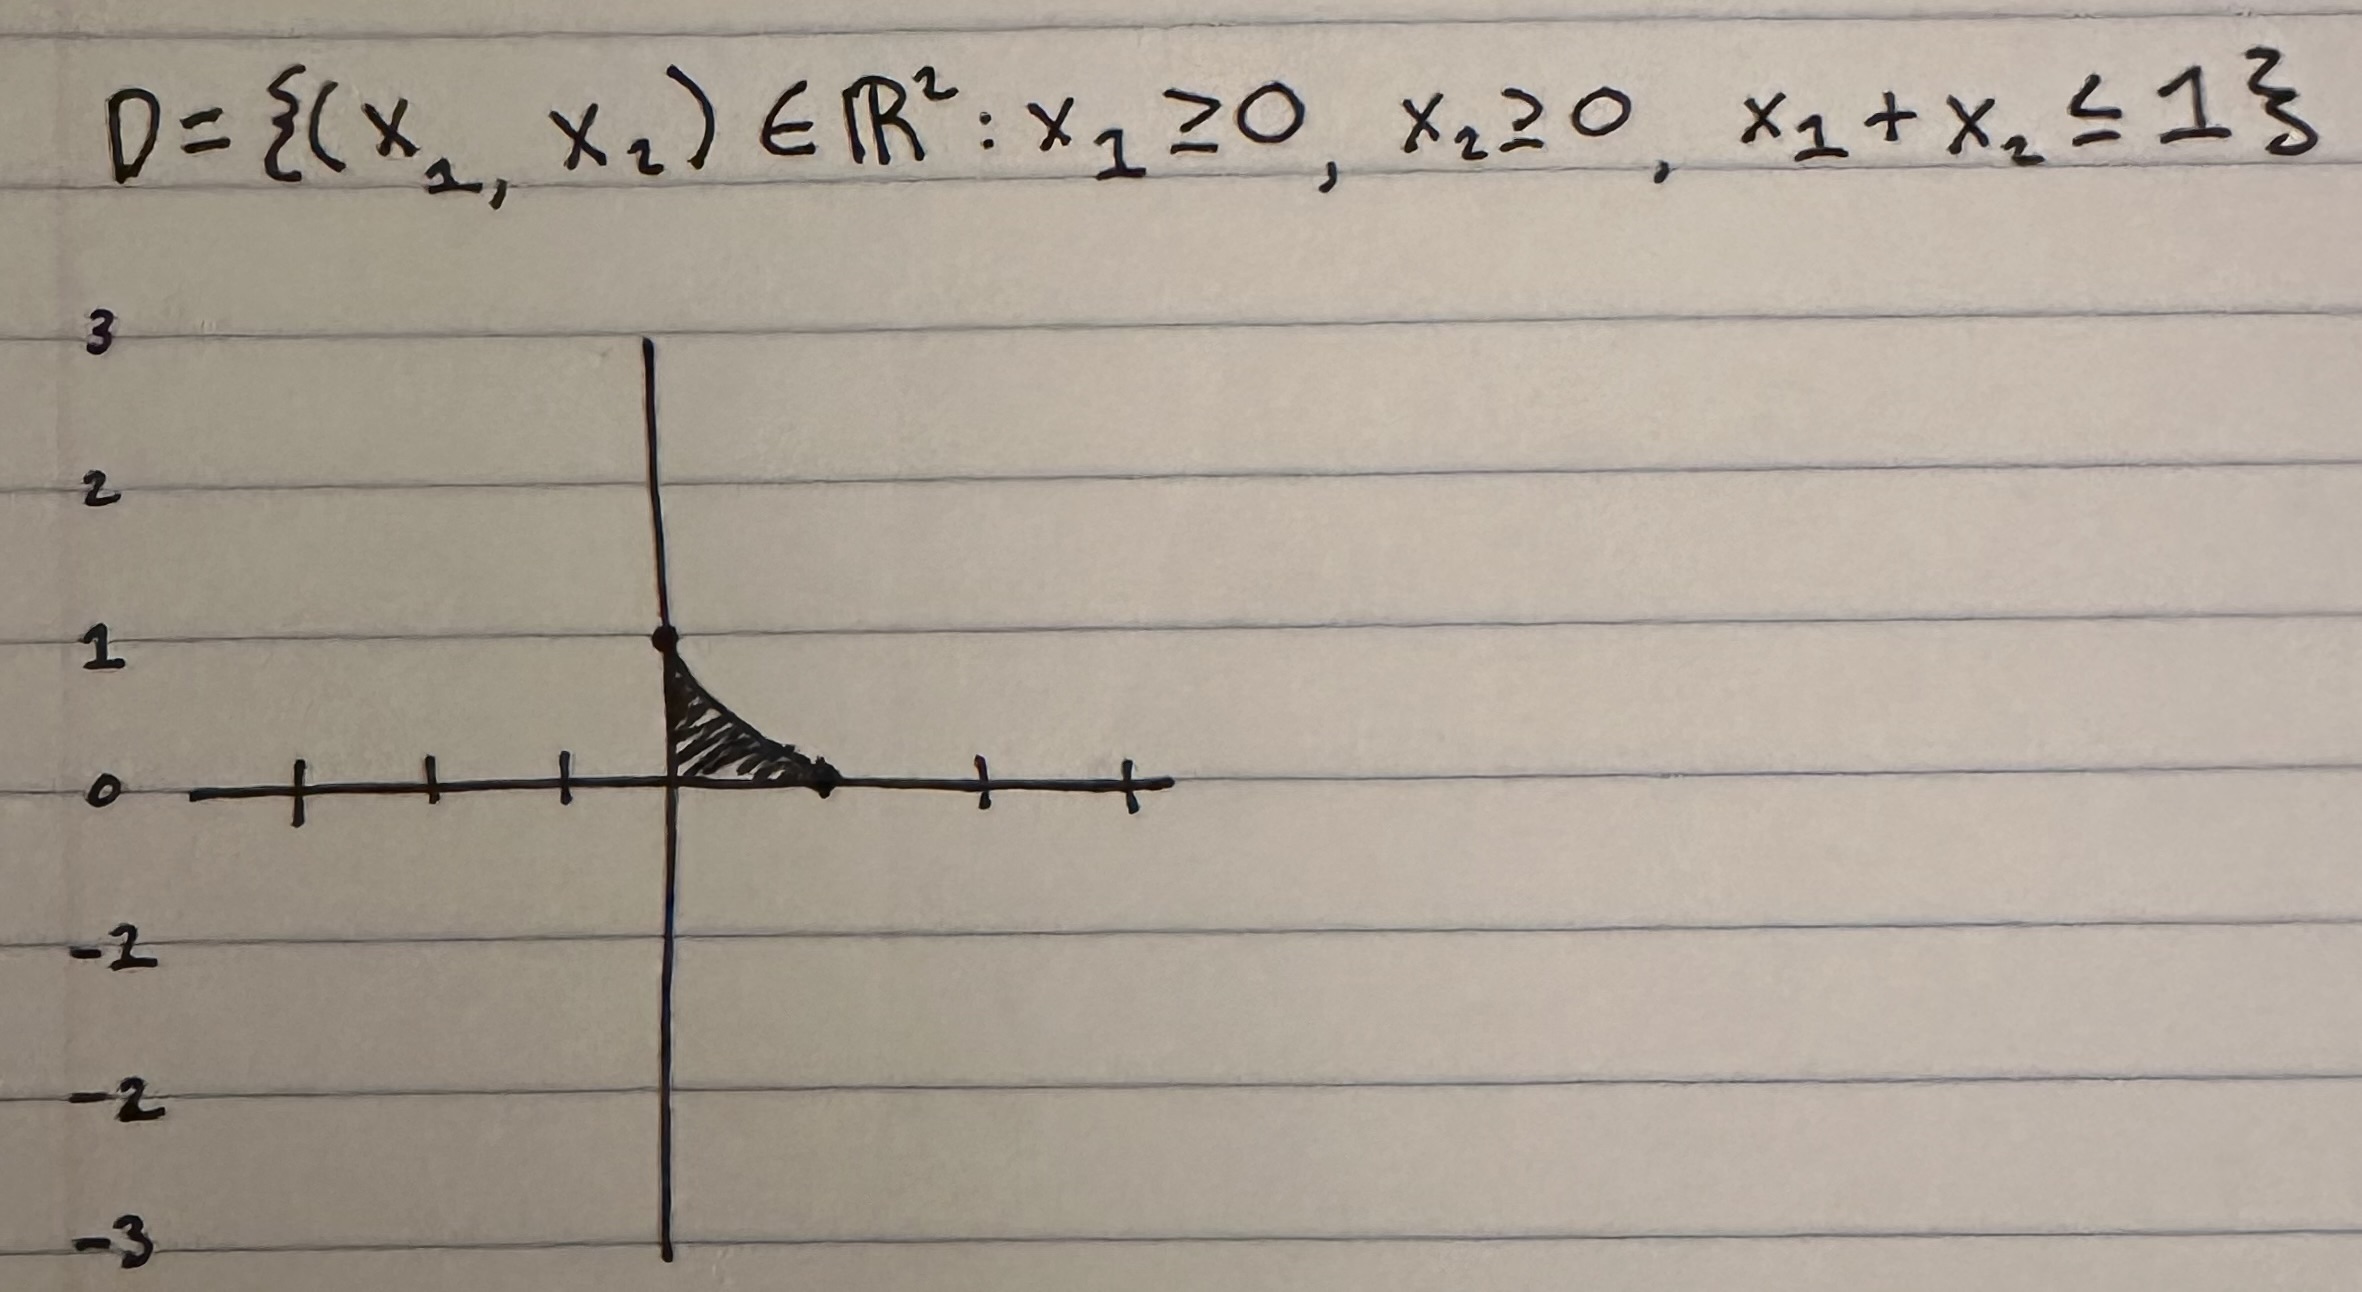 D = {(x₁, x₂) ∈ ℝ² : x₁ ≥ 0, x₂ ≥ 0, x₁ + x₂ ≤ 1}
3
2
1
0
-1
-2
-3